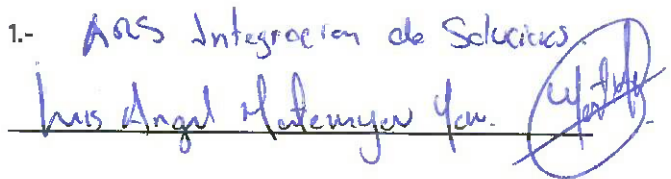 1.- ARS Integracion de Soluciones
Luis Angel Montemayor